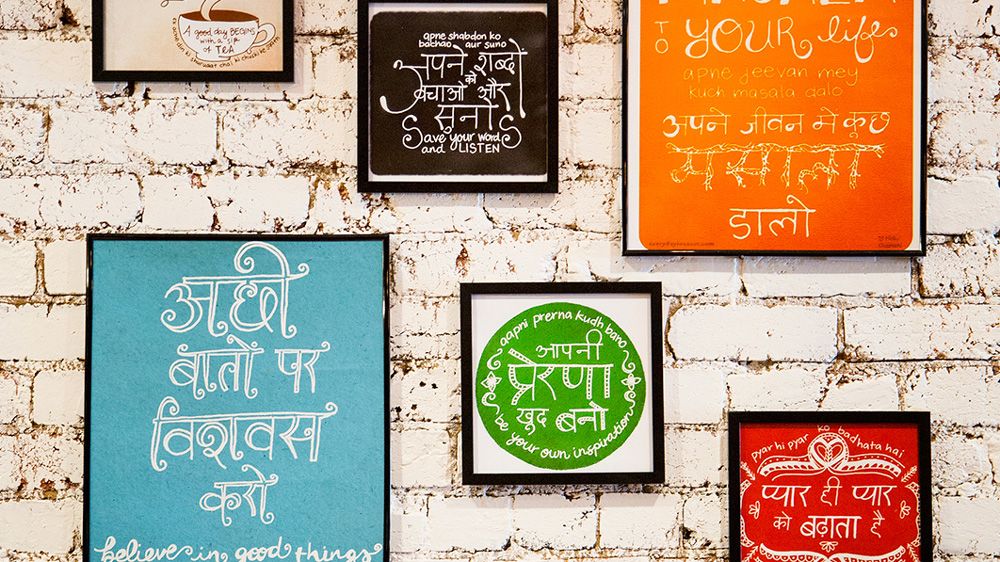 A good day BEGINS
with a sip
of TEA
din ki shuruaat chai ki chuski
apne shabdon ko
bachao aur suno
अपने शब्दों
को
बचाओ और
सुनो
Save your words
and LISTEN
TO YOUR life
apne jeevan mey
kuch masala dalo
अपने जीवन मे कूछ
मसाला
डालो
अछी
बातों पर
विशवस
करो
believe in good things
aapni prerna kudh bano
आपनी
प्रेरणा
खुद बनो
be your own inspiration
pyar hi pyar ko badhata hai
प्यार ही प्यार
को बढ़ाता है